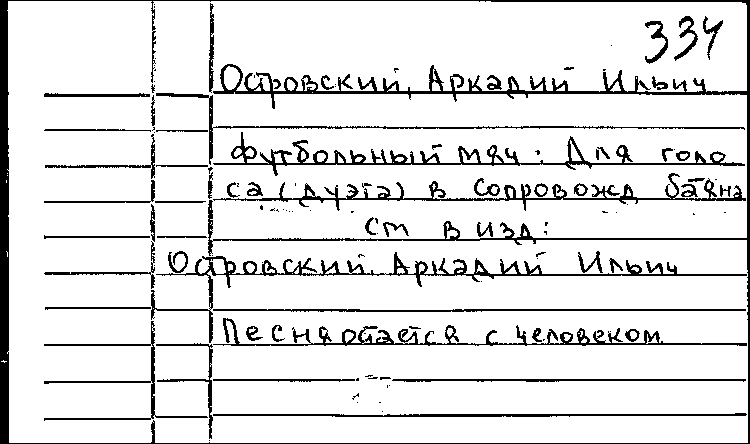 334
Островский, Аркадий Ильич
Футбольный мяч: Для голо
са (дуэта) в сопровожд баяна
см в изд:
Островский. Аркадий Ильич
Песня остается с человеком.